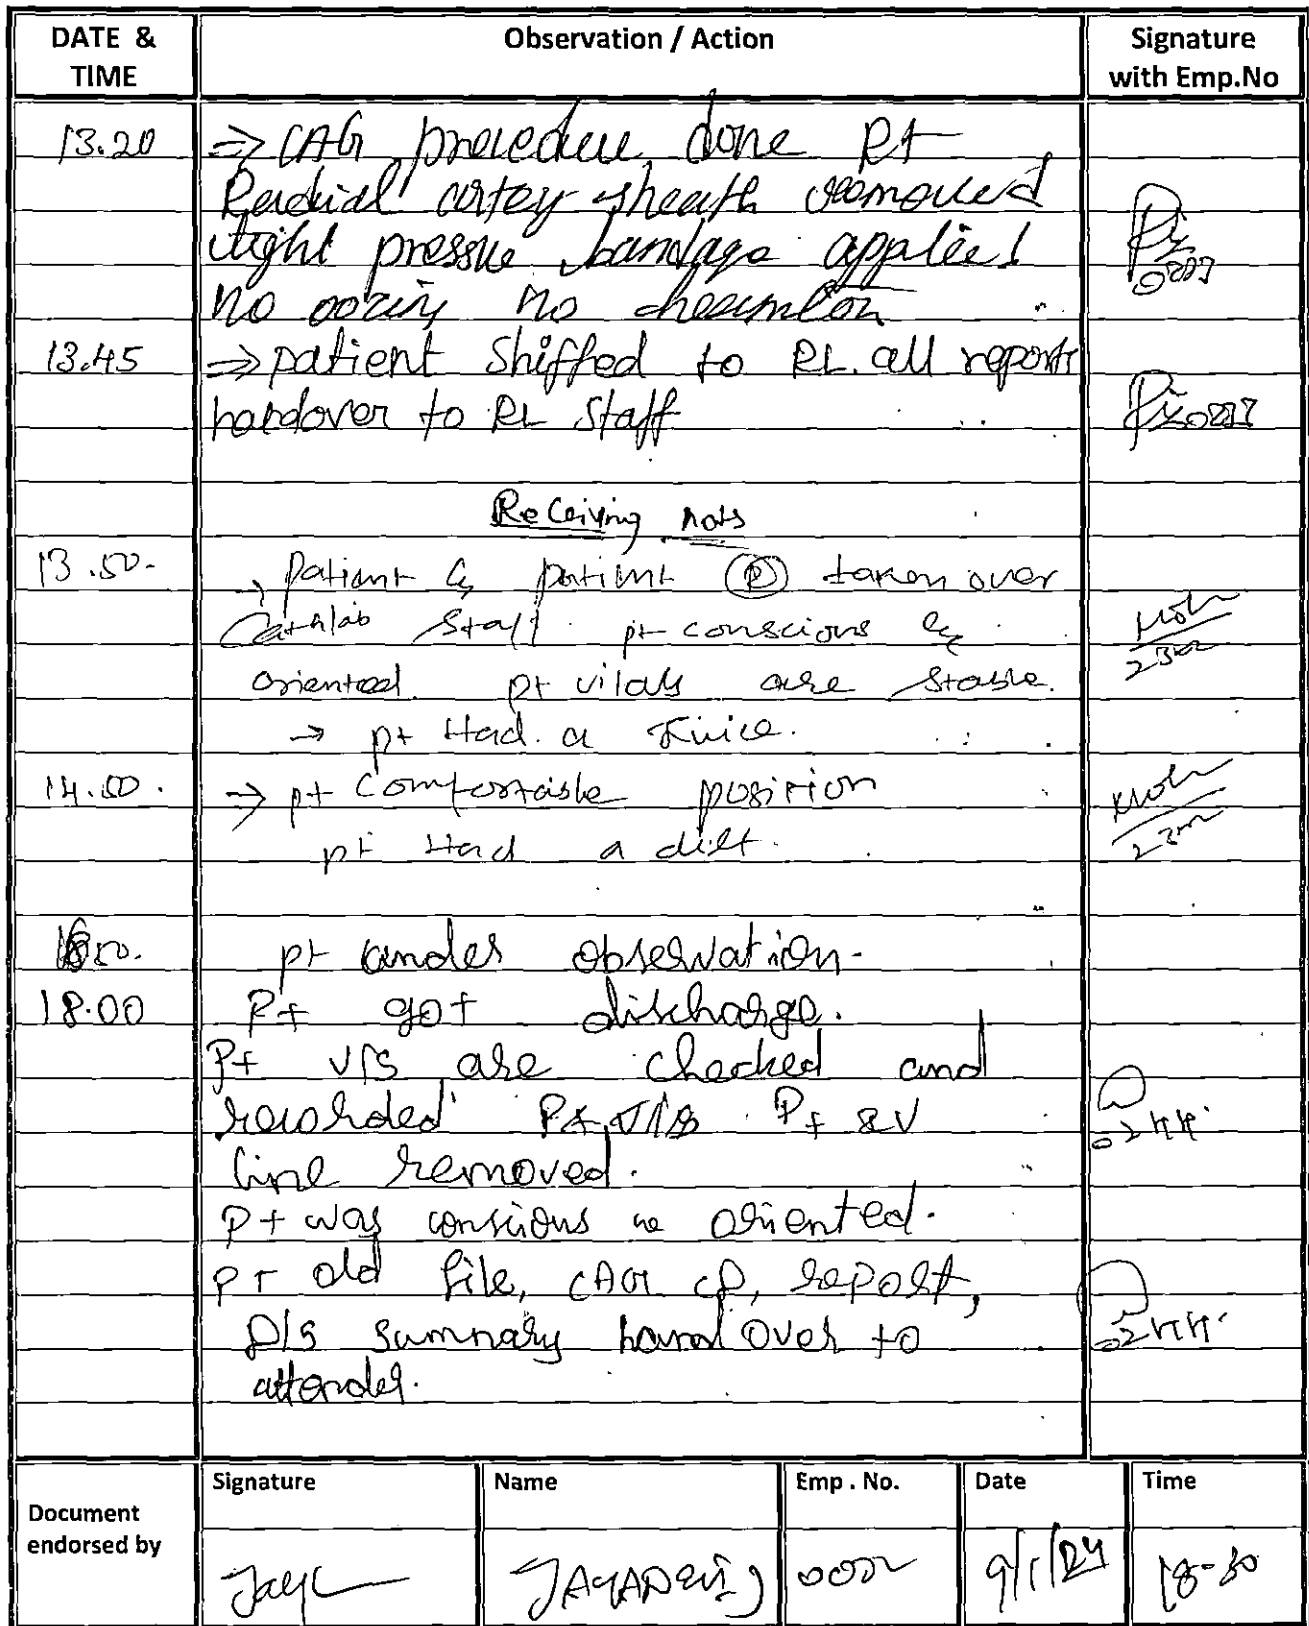 DATE & TIME
Observation / Action
Signature with Emp.No
13.20 => CAG procedure done Rt
Radial artery sheath removed
tight pressure bandage applied
no oozing no
13.45 => patient Shiffed to RL. all reports
handover to RL Staff
Receiving nots
13.50. → patient & patient (P) taken over
Cathlab Staff. pt conscious &
oriented. pt vitals are Stable.
→ pt Had. a Juice.
14.50. => pt Comfortable position
pt Had a diet.
pt under observation.
18.00 Pt got discharge.
Pt V/S are checked and
recorded. Pt V/S Pt
line removed.
Pt was consious oriented.
pt old file, CAG CD, report,
D/S summary hand over to
attender.
Document endorsed by
Signature
Name
Emp . No.
Date
Time
9/1/24
18-30